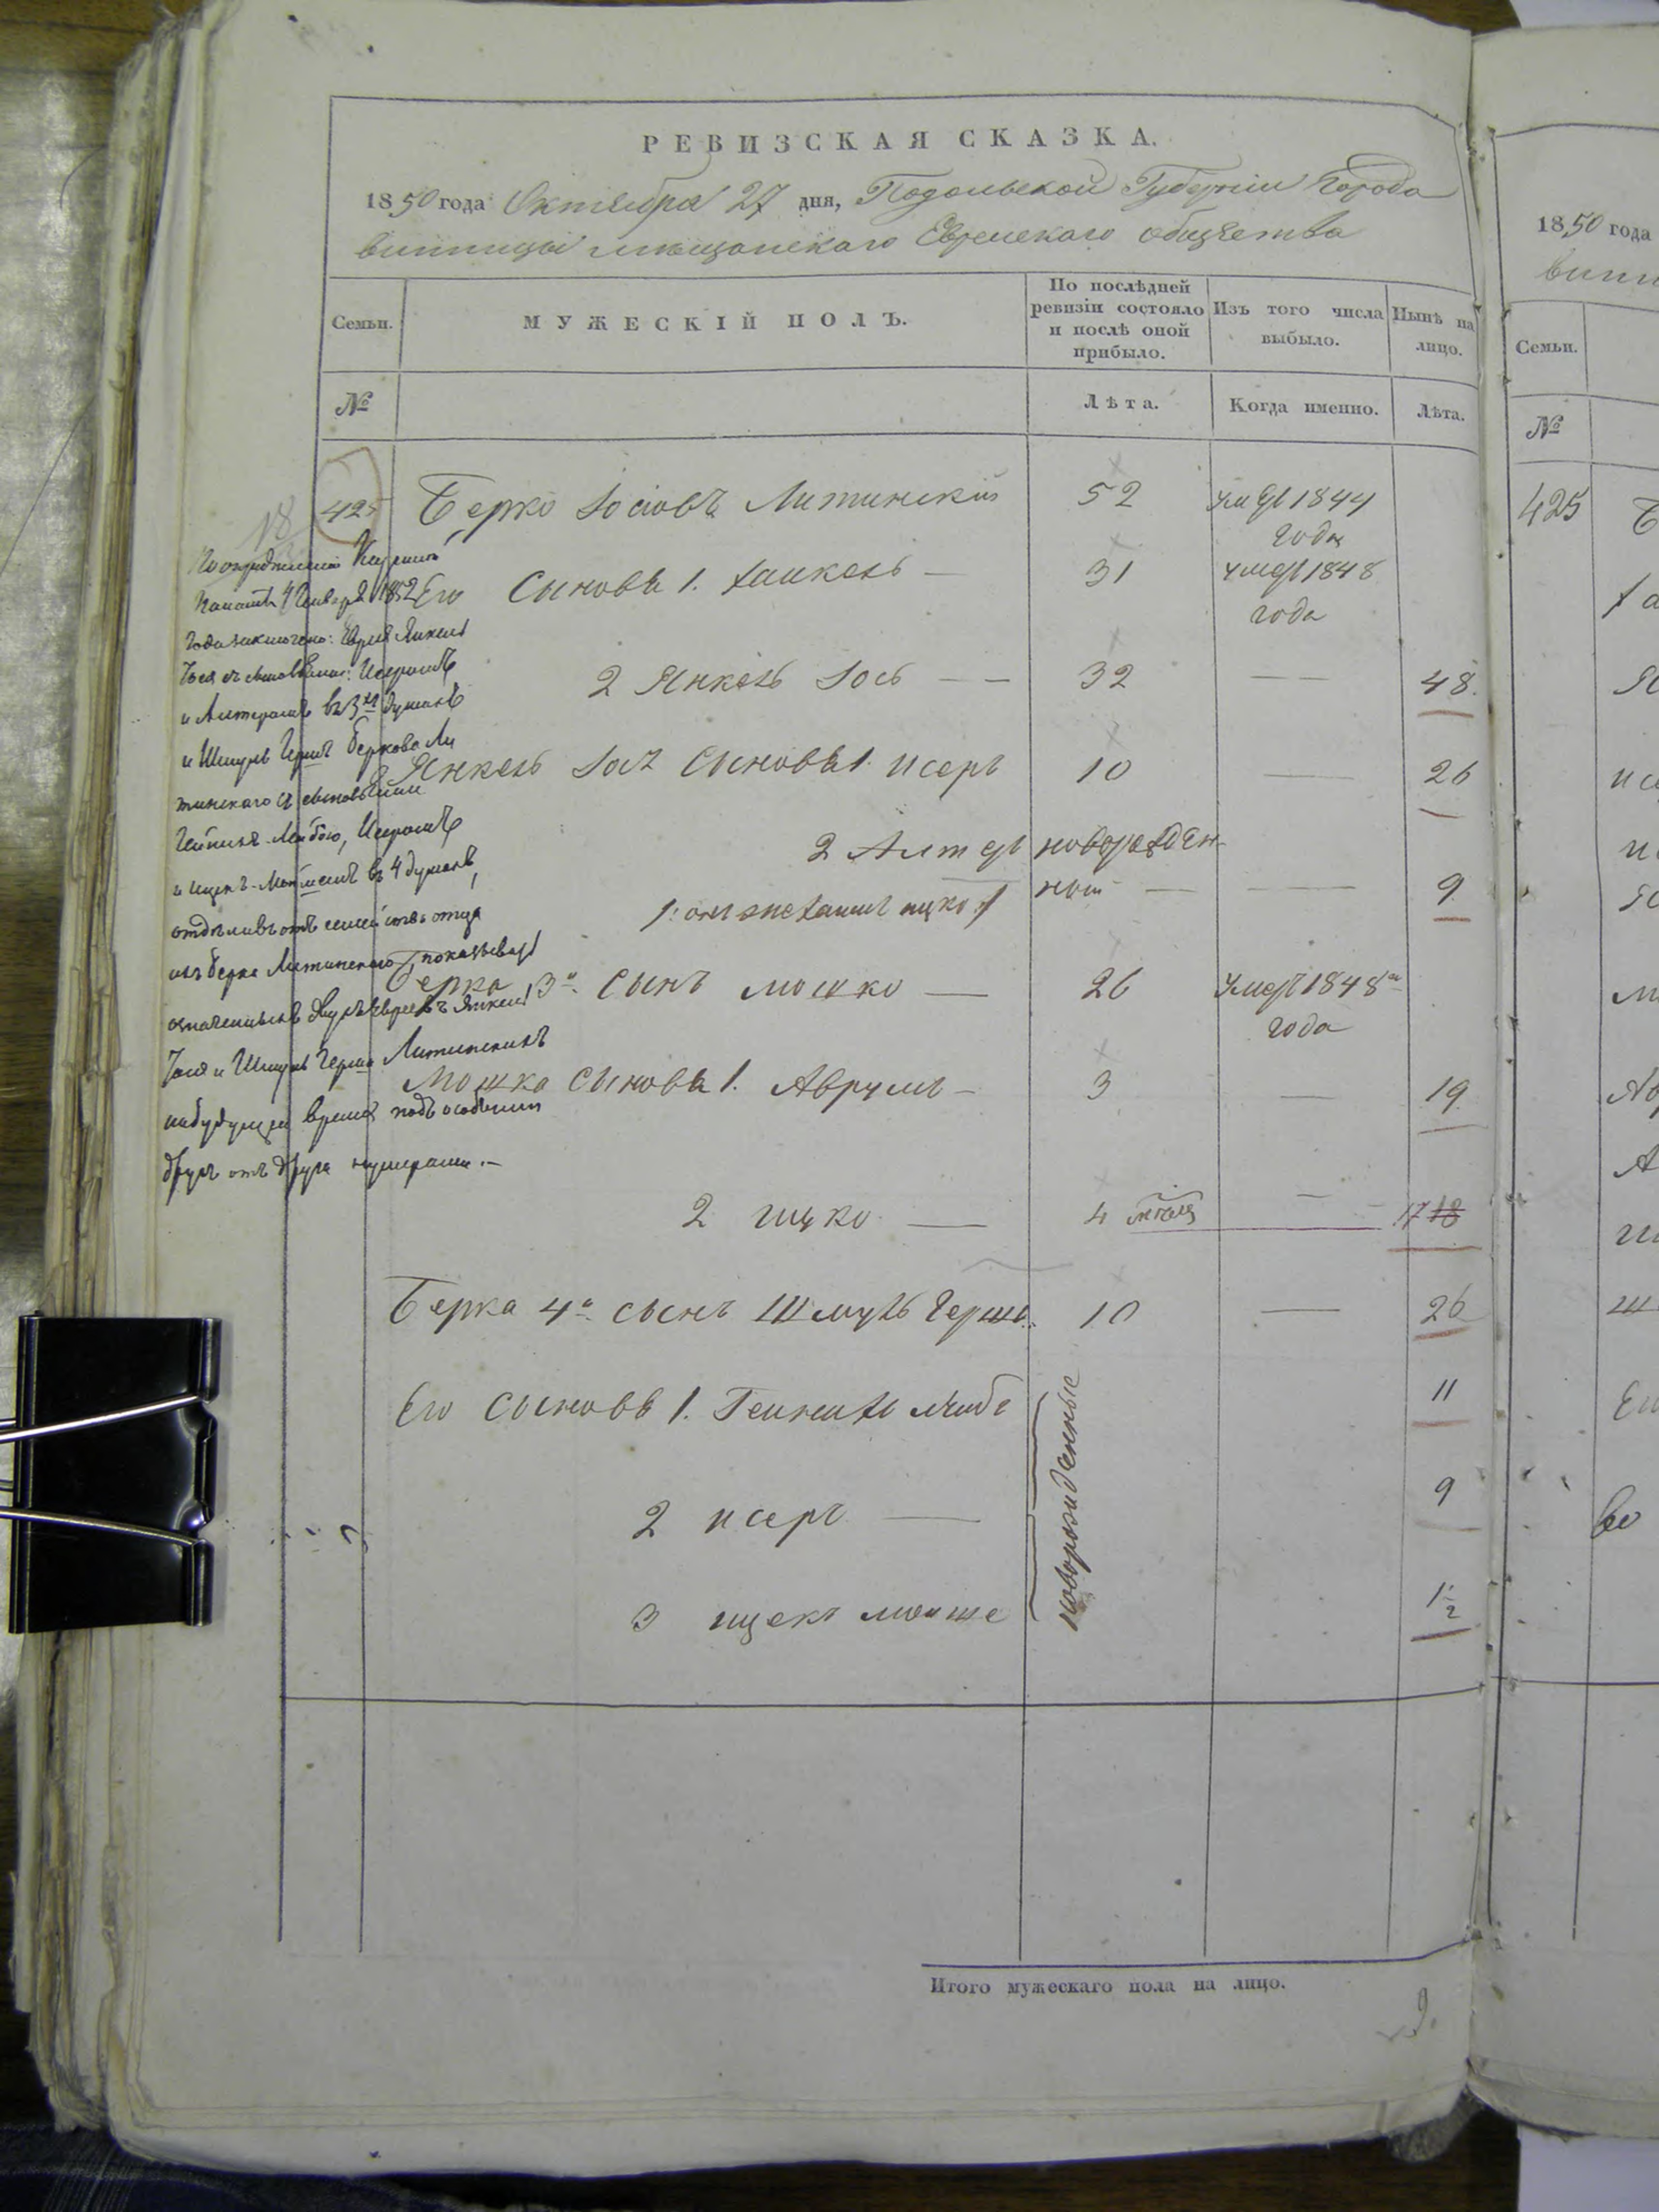 РЕВИЗСКАЯ СКАЗКА.
1850 года Октября 27 дня, Подольской Губерніи Города
винницы мѣщанскаго Еврейскаго общества
Семьи.
МУЖЕСКІЙ ПОЛЪ.
По послѣдней ревизіи состояло и послѣ оной прибыло.
Изъ того числа выбыло.
Нынѣ на лицо.
№
Лѣта.
Когда именно.
Лѣта.
18
425 Берко Іосіовъ Литинскій 52 умеръ 1844 года
Его Сыновья 1. Хаикель — 31 умеръ 1848 года
2 Янкель Іось — — 32 — — 48.
Янкель Іося Сыновья 1. исеръ 10 — 26
2 Алтеръ новорожден-
ный — — 9
Берка 3й Сынъ мошко — 26 умеръ 1848го года
Мошка Сыновья 1. Аврумъ — 3 — 19
2 ицко — 4 месяц — 17 18
Берка 4й сынъ Шмуль Гершъ 10 — 26
Его Сыновья 1. Геинихъ леибъ 11
2 исеръ — 9
3 ицекъ моише 1½
новорожденные
По опредѣленію
Палаты 4 Генваря 1852
года заключено: Еврея Янкеля
Іося съ сыновьями: Исеромъ
и Алтеромъ въ 3хъ душахъ
и Шмуля Герша Беркова Ли
тинскаго съ сыновьями
Гейнихъ-Лейбою, Исеромъ
и Ицекъ-Мойшемъ въ 4 душахъ,
отдѣливъ отъ семейства отца
ихъ Берка Литинскаго, показывать
означенныхъ двухъ Евреевъ Янкеля
Іося и Шмуля Герша Литинскихъ
на будущее время подъ особыми
другъ отъ друга нумерами. —
Итого мужескаго пола на лицо.
9.
1850 года
Семьи.
№
425